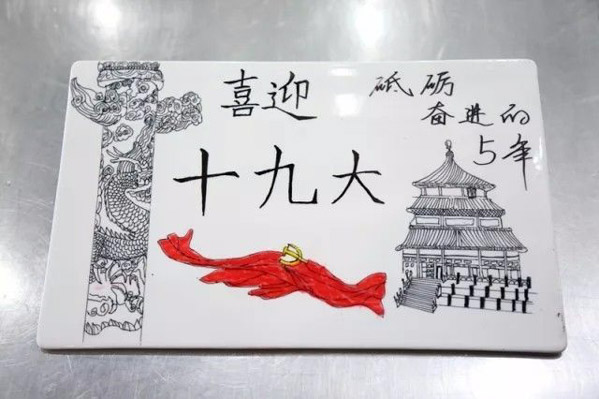 喜迎
十九大
砥砺
奋进的
5年